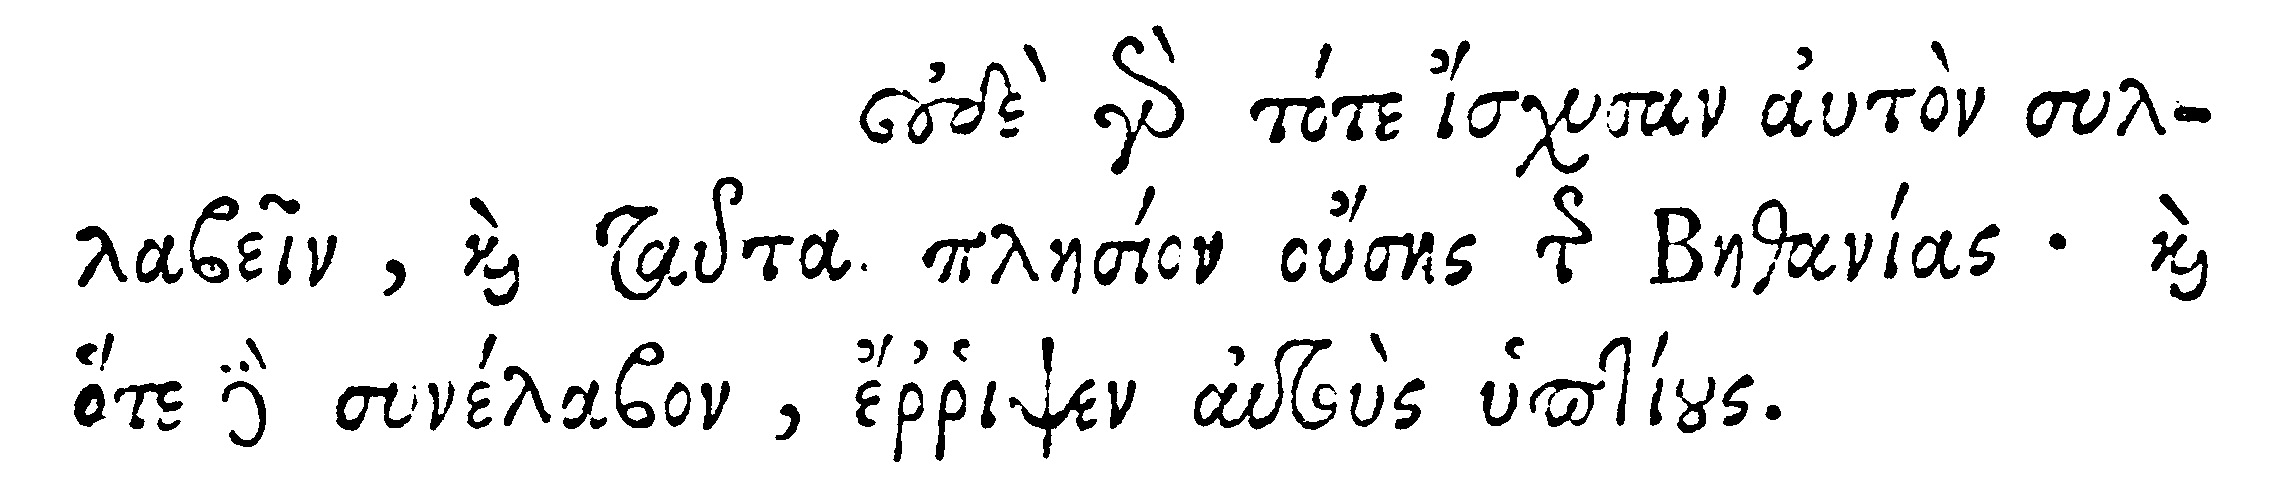 οὐδὲ γὰρ τότε ἴσχυσαν αὐτὸν συλ-
λαβεῖν, καὶ ταῦτα πλησίον οὔσης τῆς Βηθανίας· καὶ
ὅτε δὲ συνέλαβον, ἔῤῥιψεν αὐτοὺς ὑπτίους.